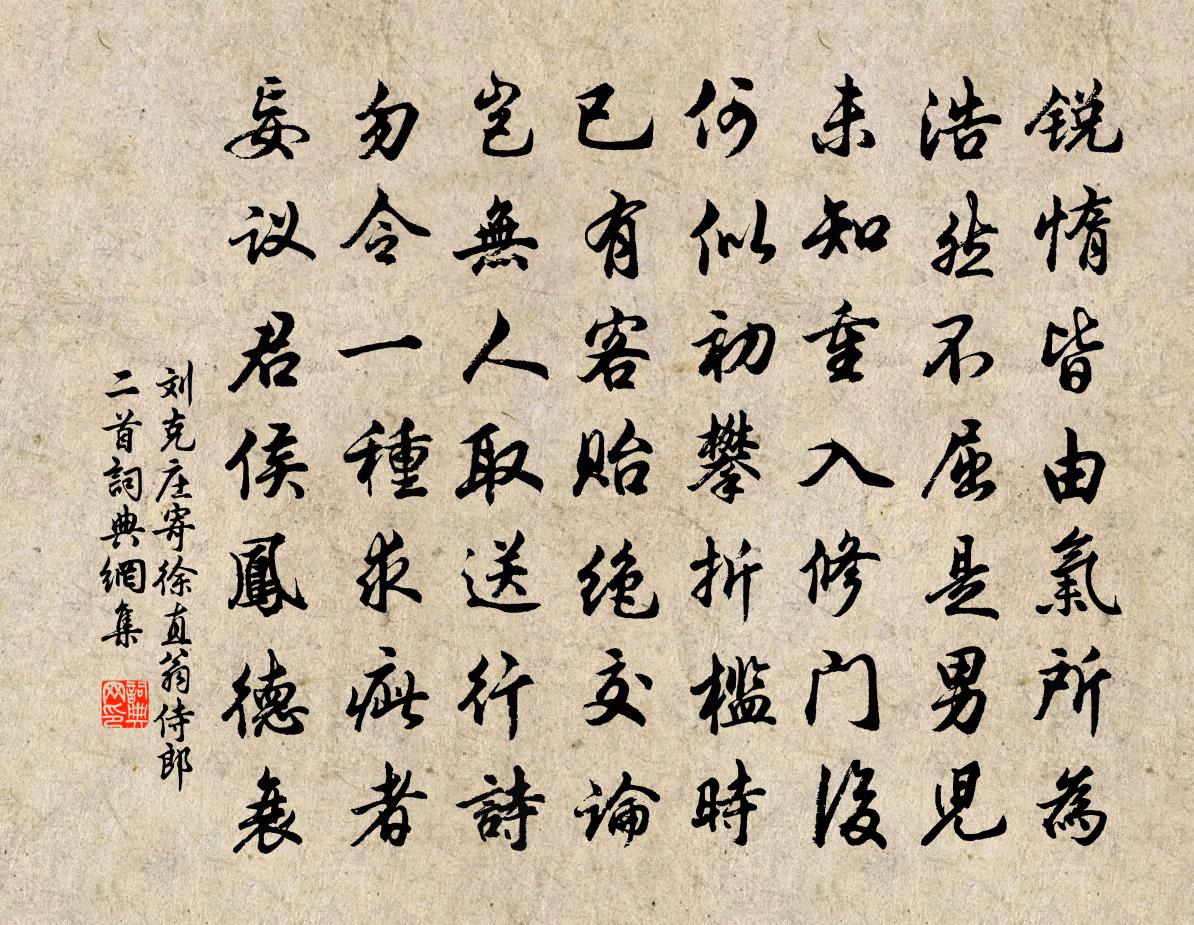 锐惰皆由氣所為
浩然不屈是男児
未知重入修门後
何似初攀折槛時
已有客贻绝交论
岂無人取送行詩
勿令一種求疵者
妄议君侯鳳德衰
刘克庄寄徐直翁侍郎
二首詞典網集
詞典
网印